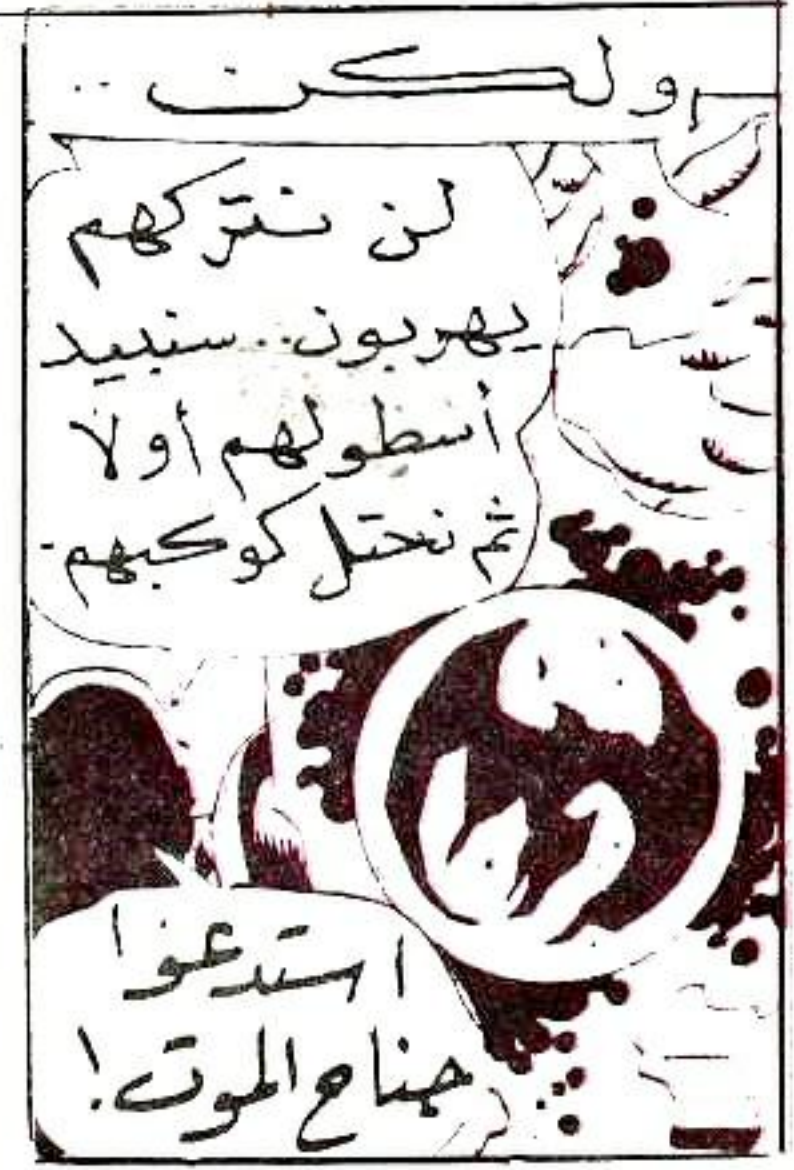 ولكن ..
لن نتركهم
يهربون.. سنبيد
أسطولهم أولا
ثم نحتل كوكبهم.
استدعوا
جناح الموت!